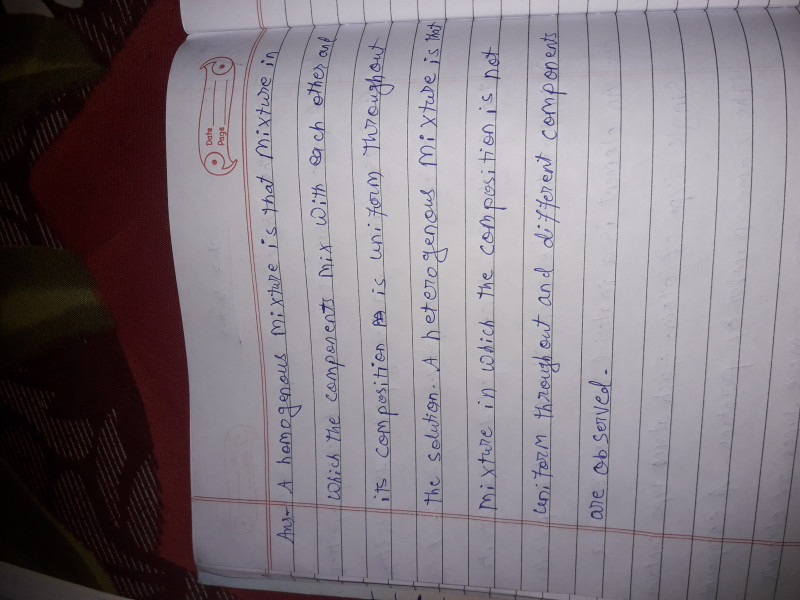 Date
Page
Ans- A homogenous mixture is that mixture in
which the components mix with each other and
its composition is uniform throughout
the solution. A heterogenous mixture is that
mixture in which the composition is not
uniform throughout and different components
are observed.